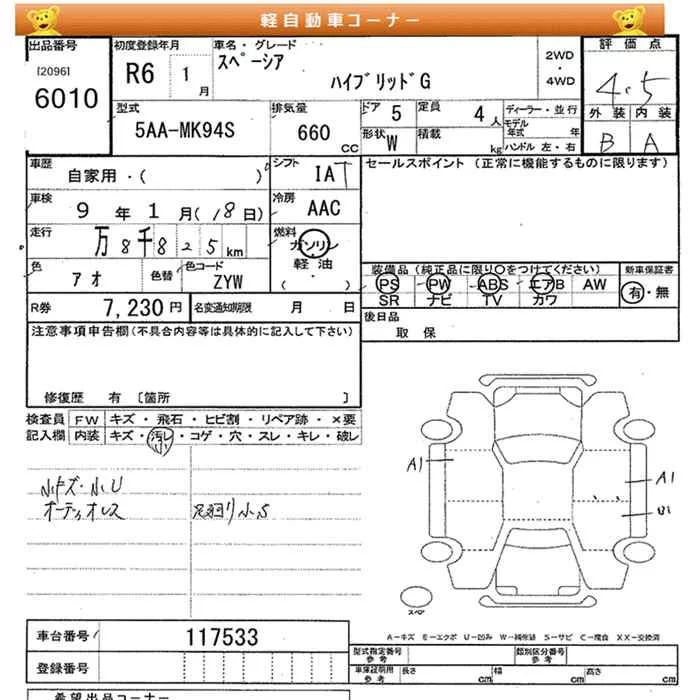 軽自動車コーナー
出品番号
[2096]
6010
初度登録年月
R6 1月
車名・グレード
スペーシア
ハイブリッドG
2WD
・
4WD
評価点
4.5
外装 内装
B A
型式
5AA-MK94S
排気量
660 CC
ドア 5 定員 4人
形状 W 積載 kg
ディーラー・並行
モデル年式 年
ハンドル 左・右
車歴
自家用・( )
シフト
IAT
車検
9年1月(18日)
冷房
AAC
走行
万8千825km
燃料
ガソリン
軽油・
( )
色
アオ
色替
色コード
ZYW
R券 7,230円
名変通知期限 月 日
セールスポイント (正常に機能するものに限ります)
装備品 (純正品に限り○をつけてください)
PS PW ABS エアB AW
SR ナビ TV カワ
新車保証書
有・無
後日品
取 保
注意事項申告欄(不具合内容等は具体的に記入して下さい)
修復歴 有 [箇所 ]
検査員記入欄
FW キズ・飛石・ヒビ割・リペア跡・×要
内装 キズ・汚レ・コゲ・穴・スレ・キレ・破レ
小
小キズ・小U
オーディオレス
足廻り小S
A1
A1
B1
スペア
A-キズ E-エクボ U-凹み W-補修跡 S-サビ C-腐食 XX-交換済
車台番号
117533
登録番号
型式指定番号
参考
類別区分番号
参考
車庫証明用
参考
長さ cm 幅 cm 高さ cm
希望出品コーナー